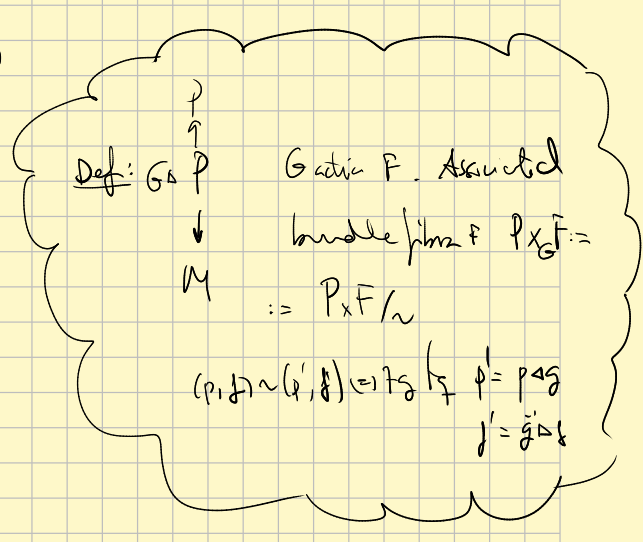 P
↑
Def: G▷ P G actúa F. Associated
↓ bundle fibra F P×_G F :=
M := P×F/∼
(p,f)∼(p',f') ⇔ ∃g tq p' = p◁g
f' = g⁻¹▷f